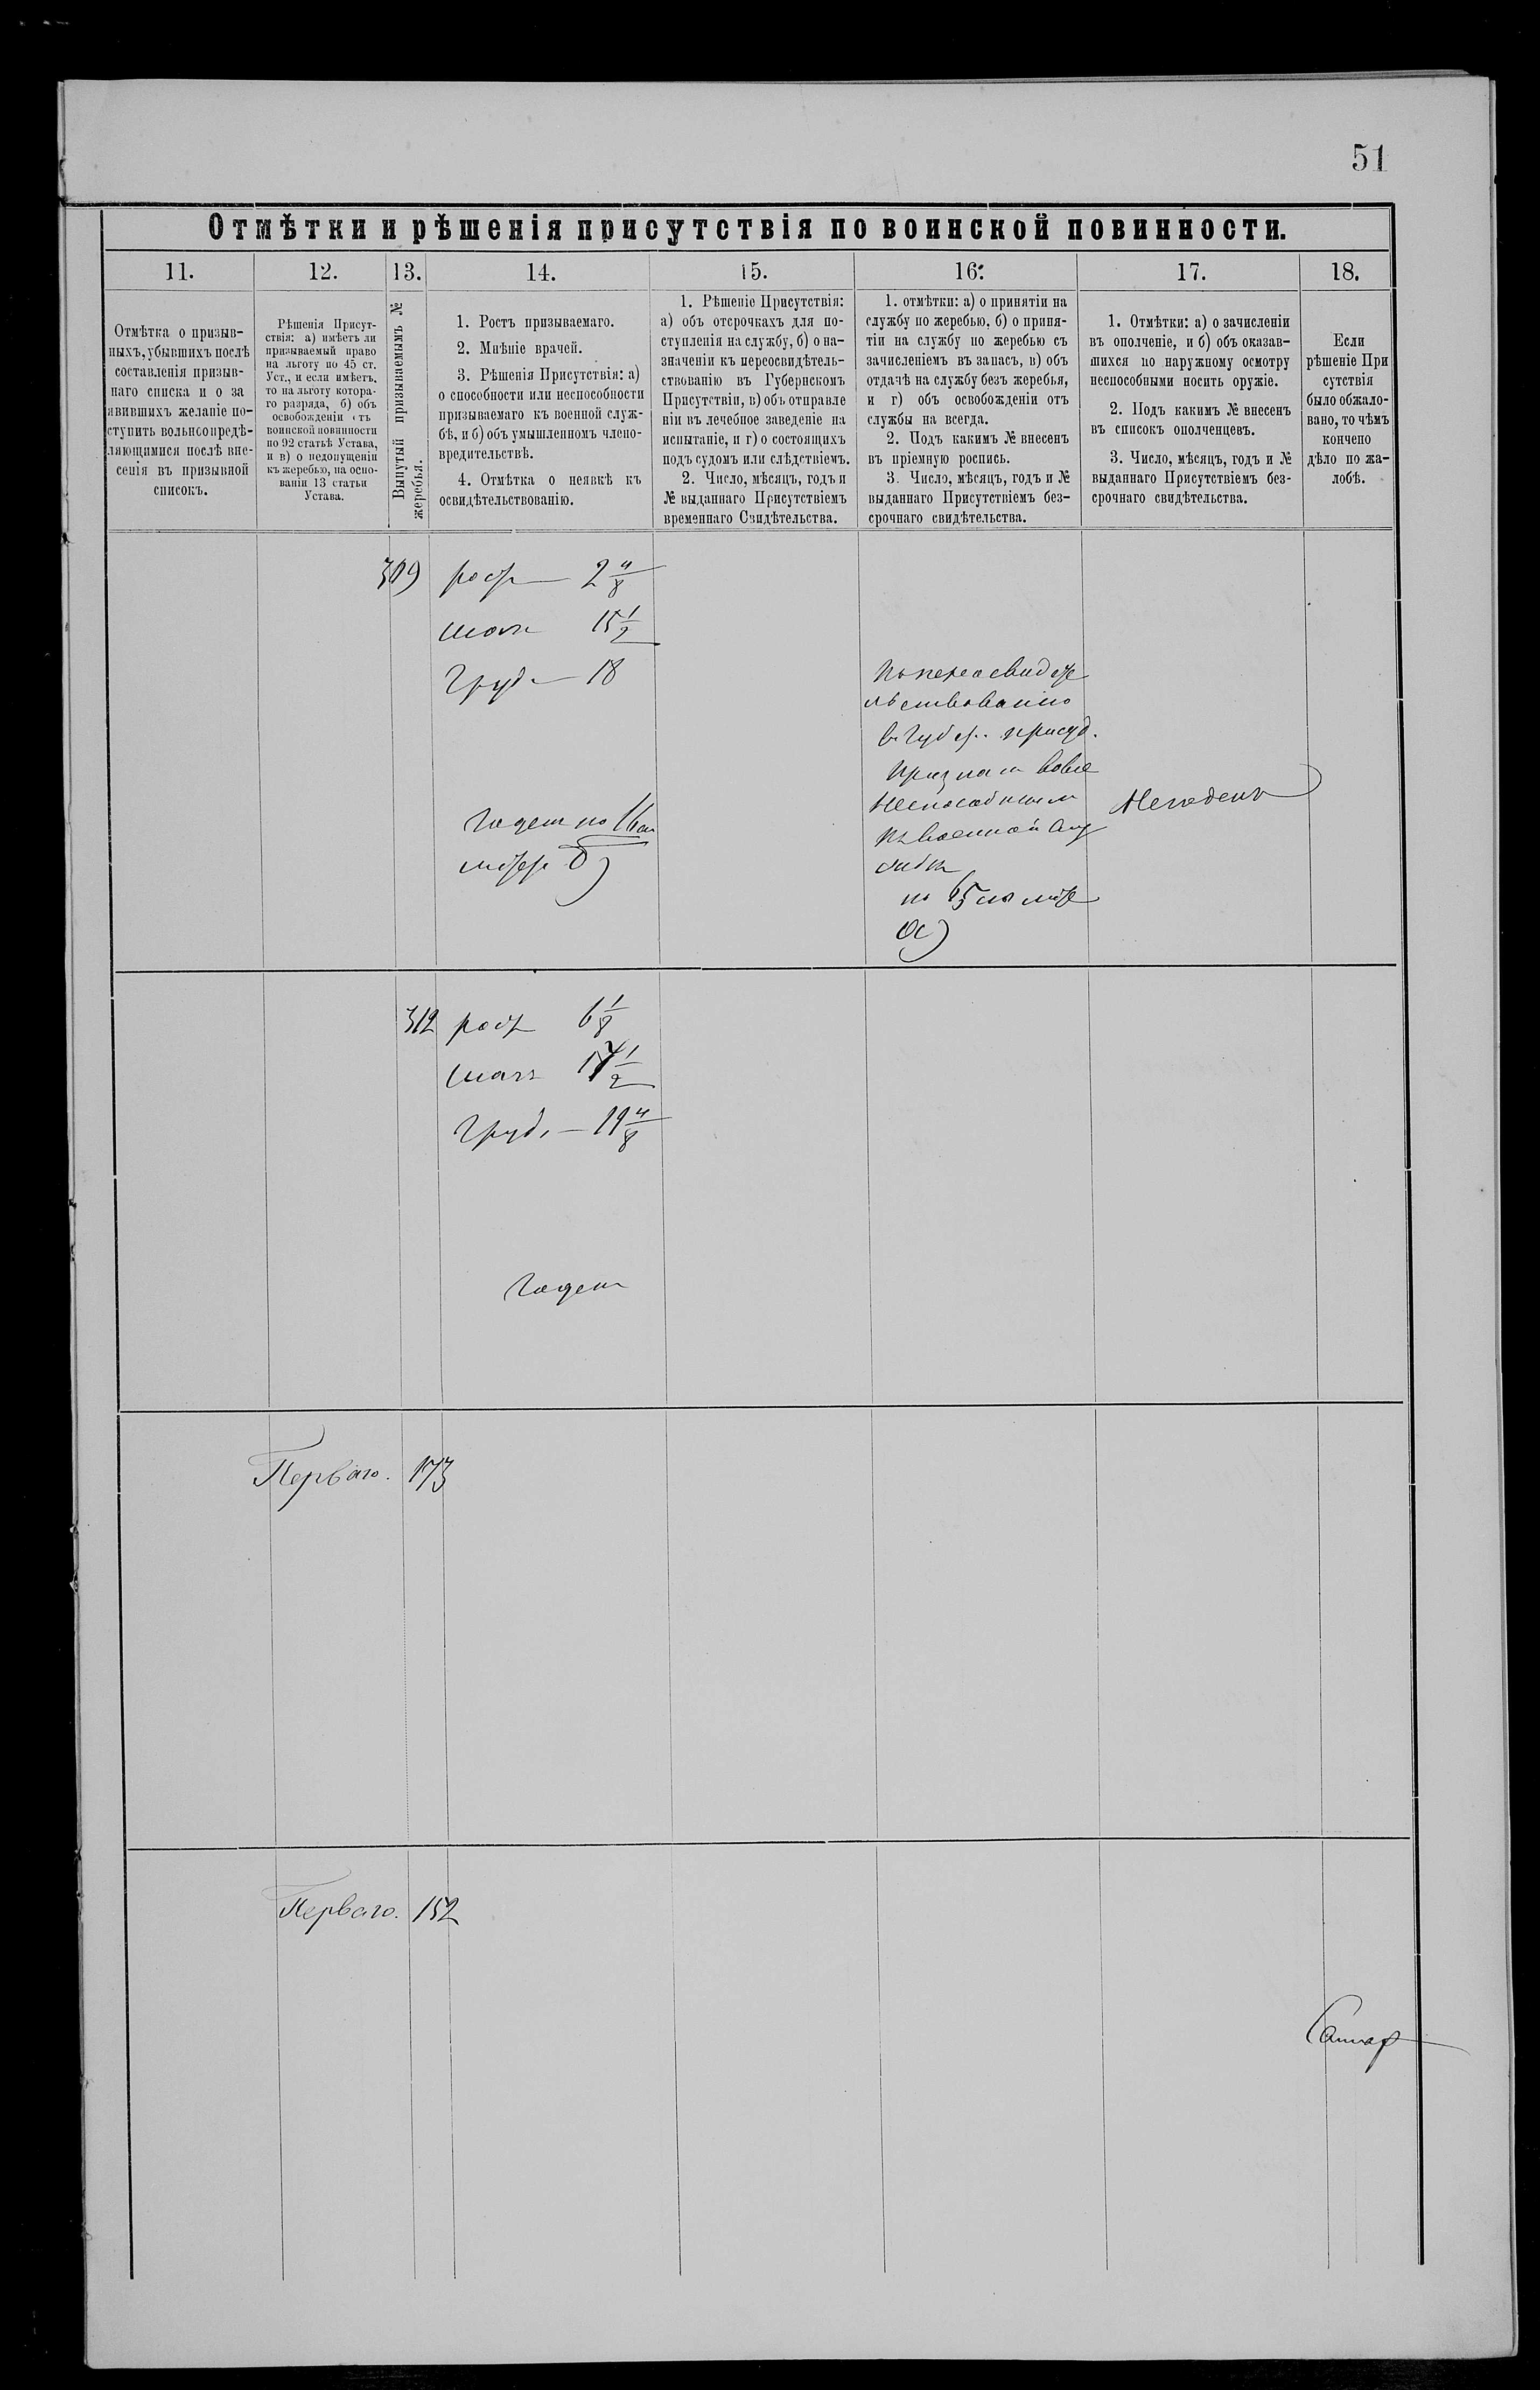 51
Отмѣтки и рѣшенія присутствія по воинской повинности.
11.
12.
13.
14.
15.
16.
17.
18.
Отмѣтка о призыв-
ныхъ, убывшихъ послѣ
составленія призыв-
наго списка и о за
явившихъ желаніе по-
ступить вольноопредѣ-
ляющимися послѣ вне-
сенія въ призывной
списокъ.
Рѣшенія Присут-
ствія: а) имѣетъ ли
призываемый право
на льготу по 45 ст.
Уст., и если имѣетъ,
то на льготу котора-
го разряда, б) объ
освобожденіи отъ
воинской повинности
по 92 статьѣ Устава,
и в) о недопущеніи
къ жеребью, на осно-
ваніи 13 статьи
Устава.
Вынутый призываемымъ №
жеребья.
1. Ростъ призываемаго.
2. Мнѣніе врачей.
3. Рѣшенія Присутствія: а)
о способности или неспособности
призываемаго къ военной служ-
бѣ, и б) объ умышленномъ члено-
вредительствѣ.
4. Отмѣтка о неявкѣ къ
освидѣтельствованію.
1. Рѣшеніе Присутствія:
а) объ отсрочкахъ для по-
ступленія на службу, б) о на-
значеніи къ переосвидѣтель-
ствованію въ Губернскомъ
Присутствіи, в) объ отправле
ніи въ лечебное заведеніе на
испытаніе, и г) о состоящихъ
подъ судомъ или слѣдствіемъ.
2. Число, мѣсяцъ, годъ и
№ выданнаго Присутствіемъ
временнаго Свидѣтельства.
1. отмѣтки: а) о принятіи на
службу по жеребью, б) о приня-
тіи на службу по жеребью съ
зачисленіемъ въ запасъ, в) объ
отдачѣ на службу безъ жеребья,
и г) объ освобожденіи отъ
службы на всегда.
2. Подъ какимъ № внесенъ
въ пріемную роспись.
3. Число, мѣсяцъ, годъ и №
выданнаго Присутствіемъ без-
срочнаго свидѣтельства.
1. Отмѣтки: а) о зачисленіи
въ ополченіе, и б) объ оказав-
шихся по наружному осмотру
неспособными носить оружіе.
2. Подъ какимъ № внесенъ
въ списокъ ополченцевъ.
3. Число, мѣсяцъ, годъ и №
выданнаго Присутствіемъ без-
срочнаго свидѣтельства.
Если
рѣшеніе При
сутствія
было обжало-
вано, то чѣмъ
кончено
дѣло по жа-
лобѣ.
309
рост — 2 4/8
15 1/2
Груд — 18
Годен по 16
По переосвидѣте
льствованію
в Губер. присуд.
признан вовсе
неспособным
къ военной слу
жбѣ
по 65
Негоденъ
312
рост 6 1/8
17 1/2
Груд. — 19 4/8
Годен
Перваго. 173
Перваго. 152